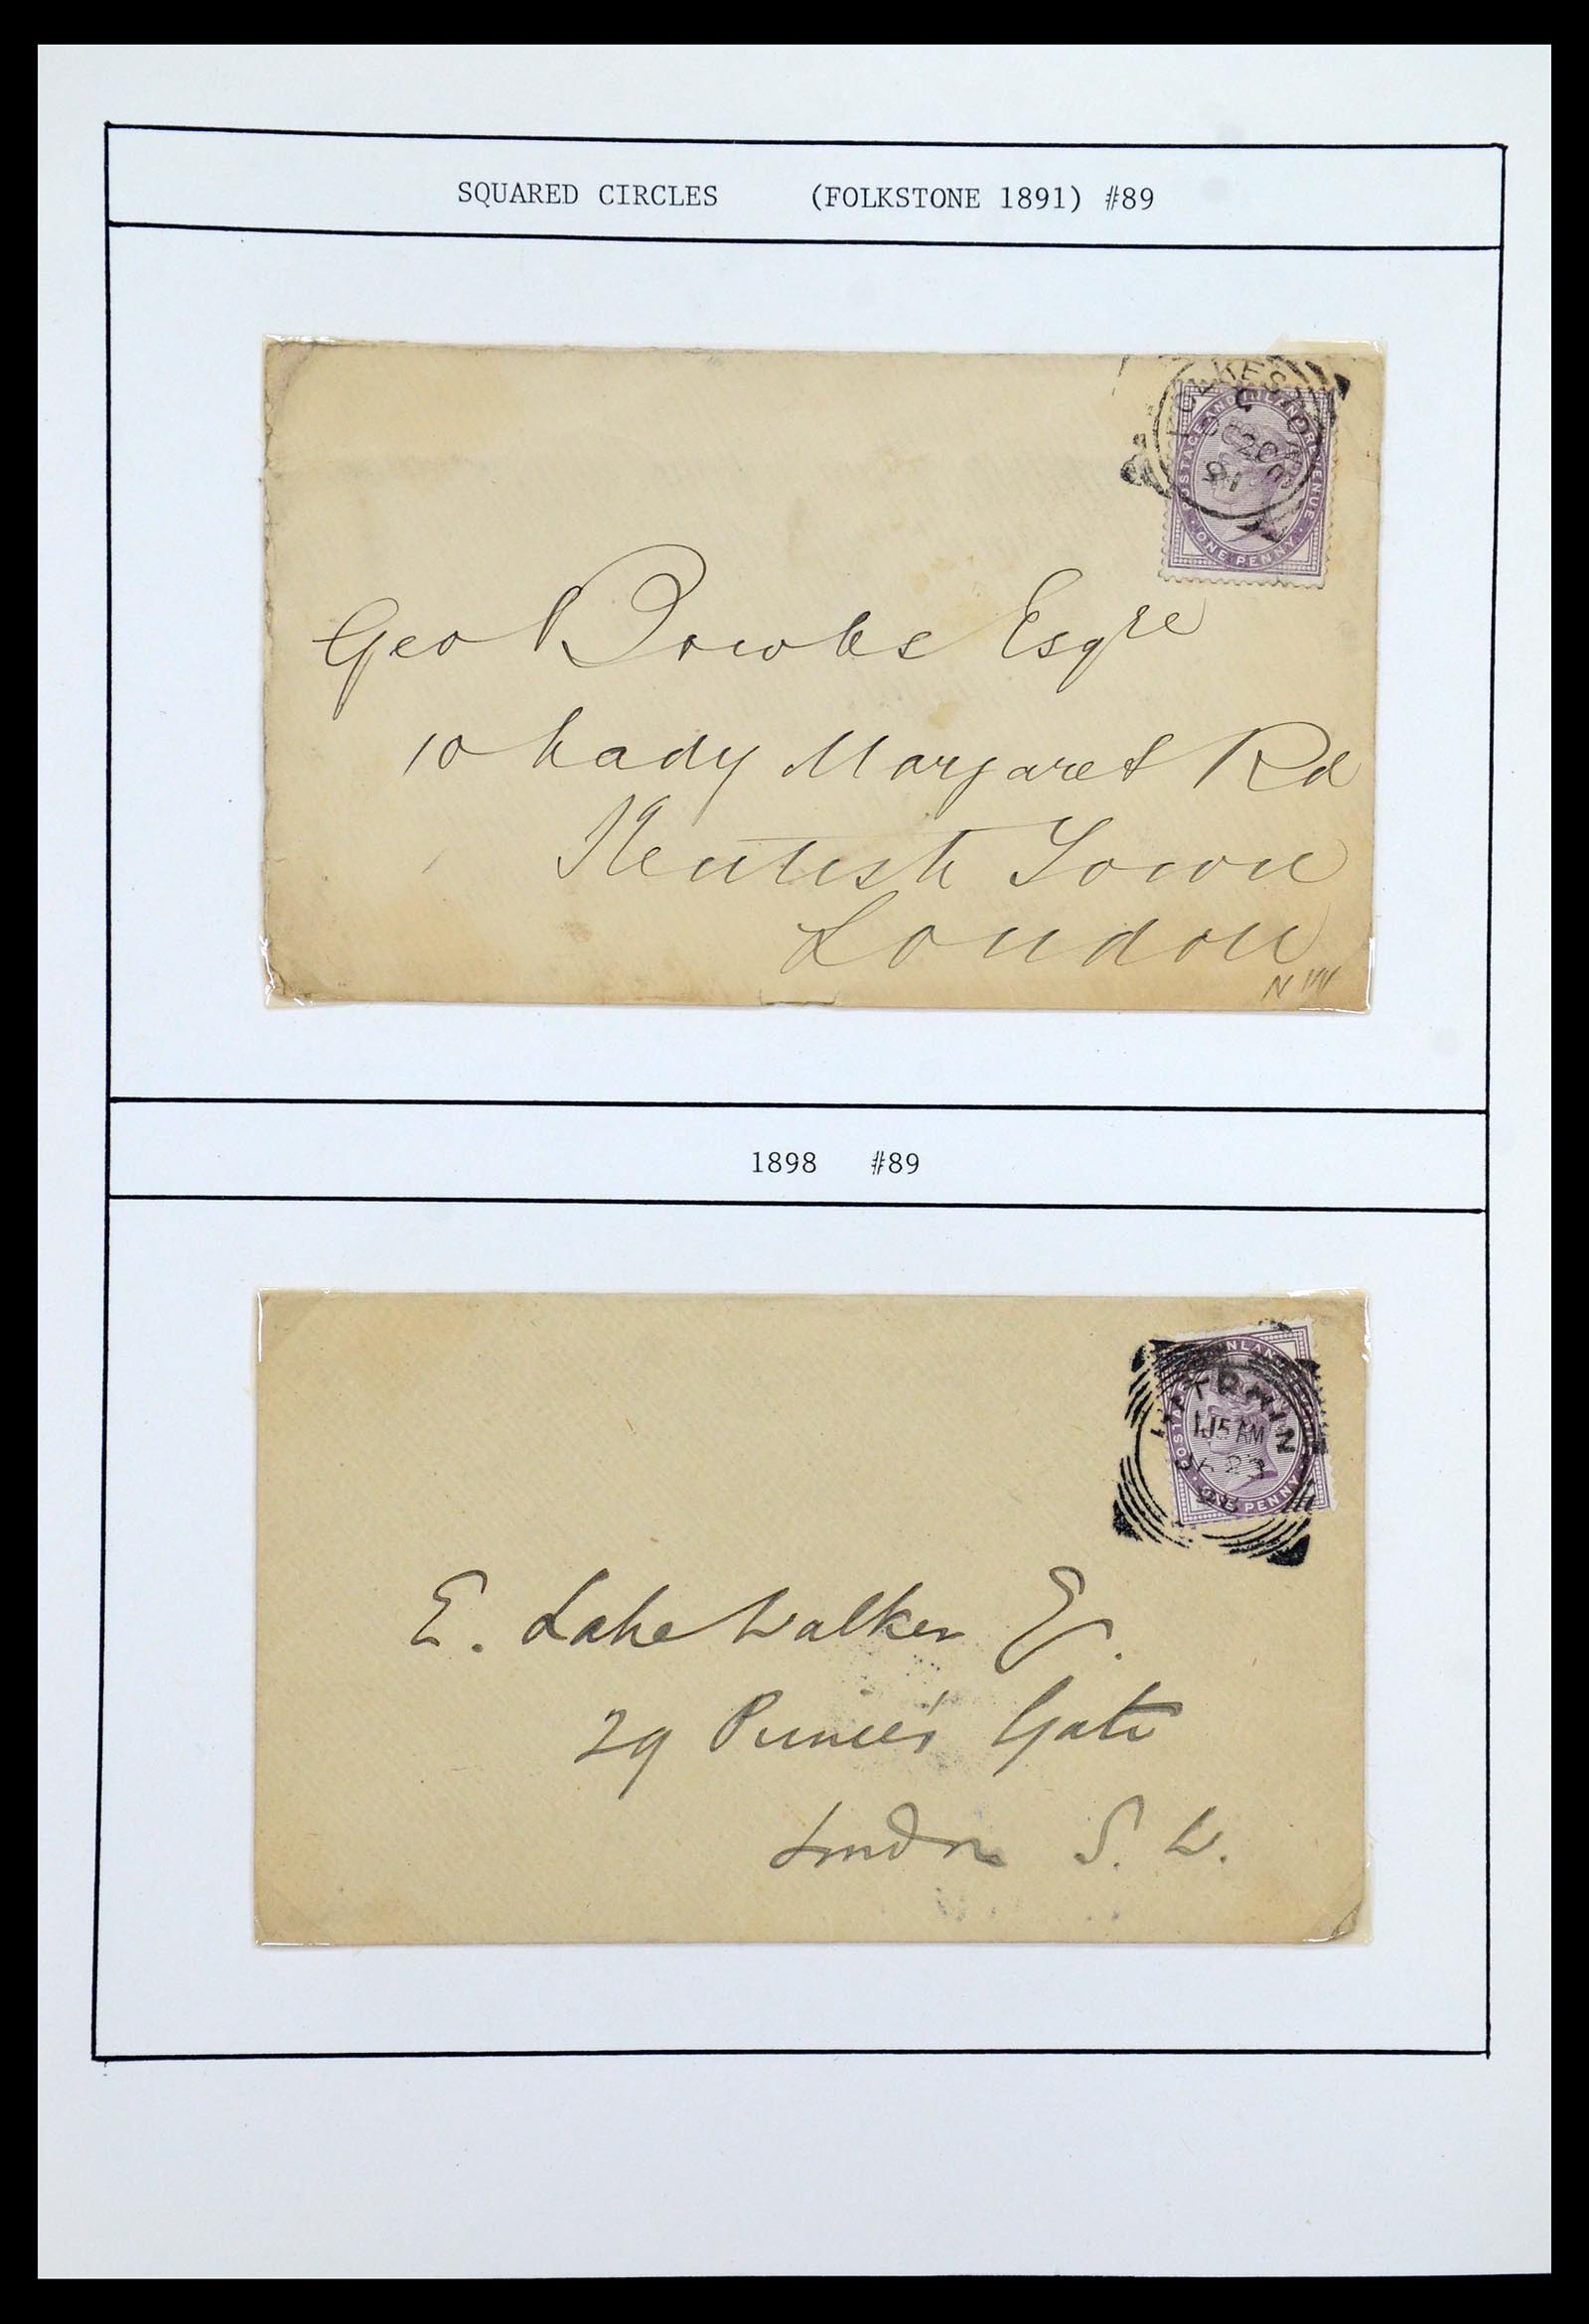 SQUARED CIRCLES (FOLKSTONE 1891) #89
FOLKESTO
C
20
91
POSTAGE AND INLAND REVENUE
ONE PENNY
Geo Bowles Esqre
10 Lady Margaret Rd
Kentish Town
London
NW
1898 #89
INLAND
1.15 AM
98
ONE PENNY
E. Lake Walker E.
29 Prince's Gate
London S. W.